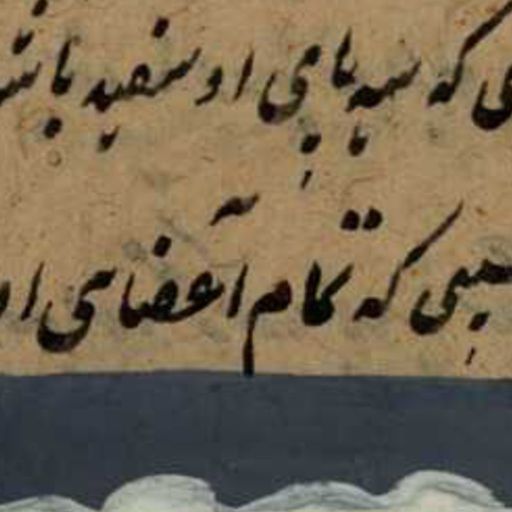 که سه پای او سفید باشد
که تمام آعضای او